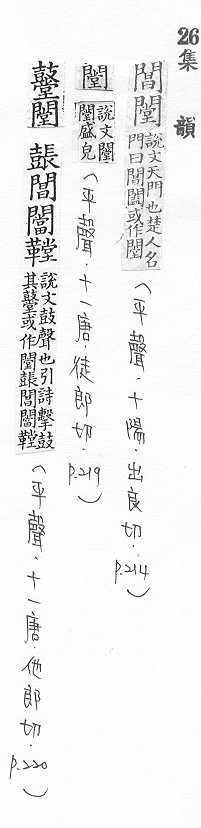 26集韻
閶闛
說文天門也楚人名
門曰閶闔或作闛
(平聲．十陽．出良切．p.214)
闛
說文闛
闛盛皃
(平聲．十一唐．徒郎切．p.219)
鼞闛 閶闣鞺
說文鼓聲也引詩擊鼓
其鼞或作闛閶闣鞺
(平聲．十一唐．他郎切．p.220)